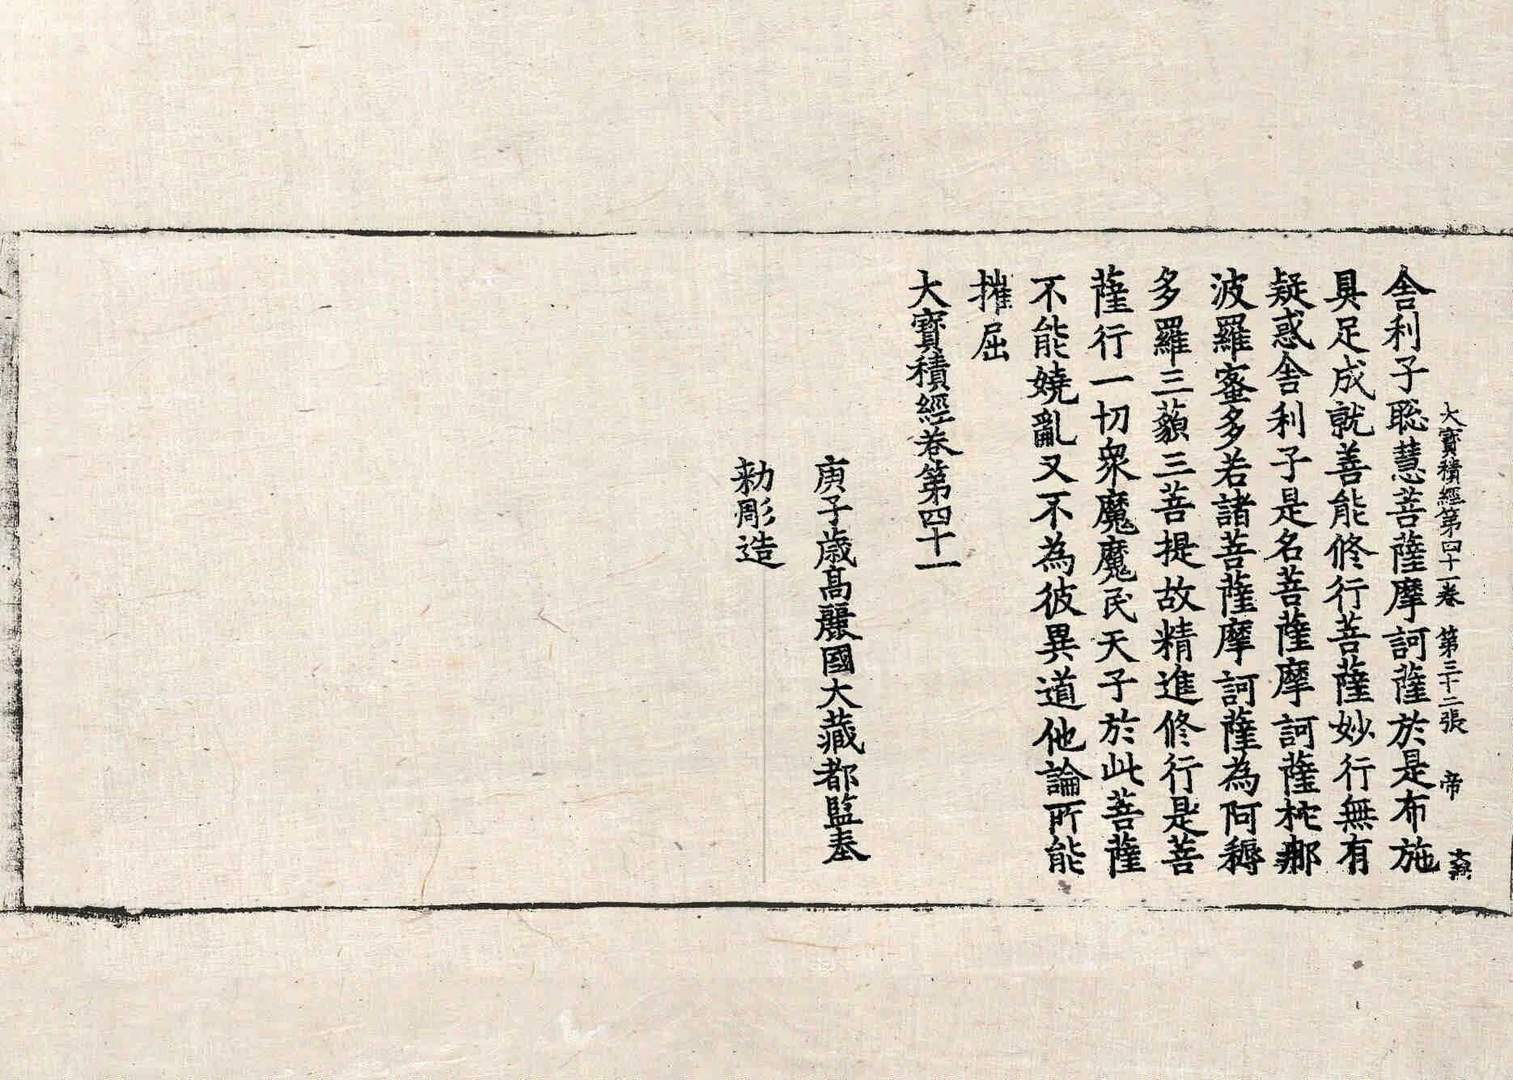 大寶積經第四十一卷 第三十二張 帝
舎利子聡慧菩薩摩訶薩於是布施
具足成就善能修行菩薩妙行無有
疑惑舎利子是名菩薩摩訶薩柁那
波羅蜜多若諸菩薩摩訶薩為阿耨
多羅三藐三菩提故精進修行是菩
薩行一切衆魔魔民天子於此菩薩
不能嬈亂又不為彼異道他論所能
摧屈
大寶積經卷第四十一
庚子歳高麗國大藏都監奉
勑彫造